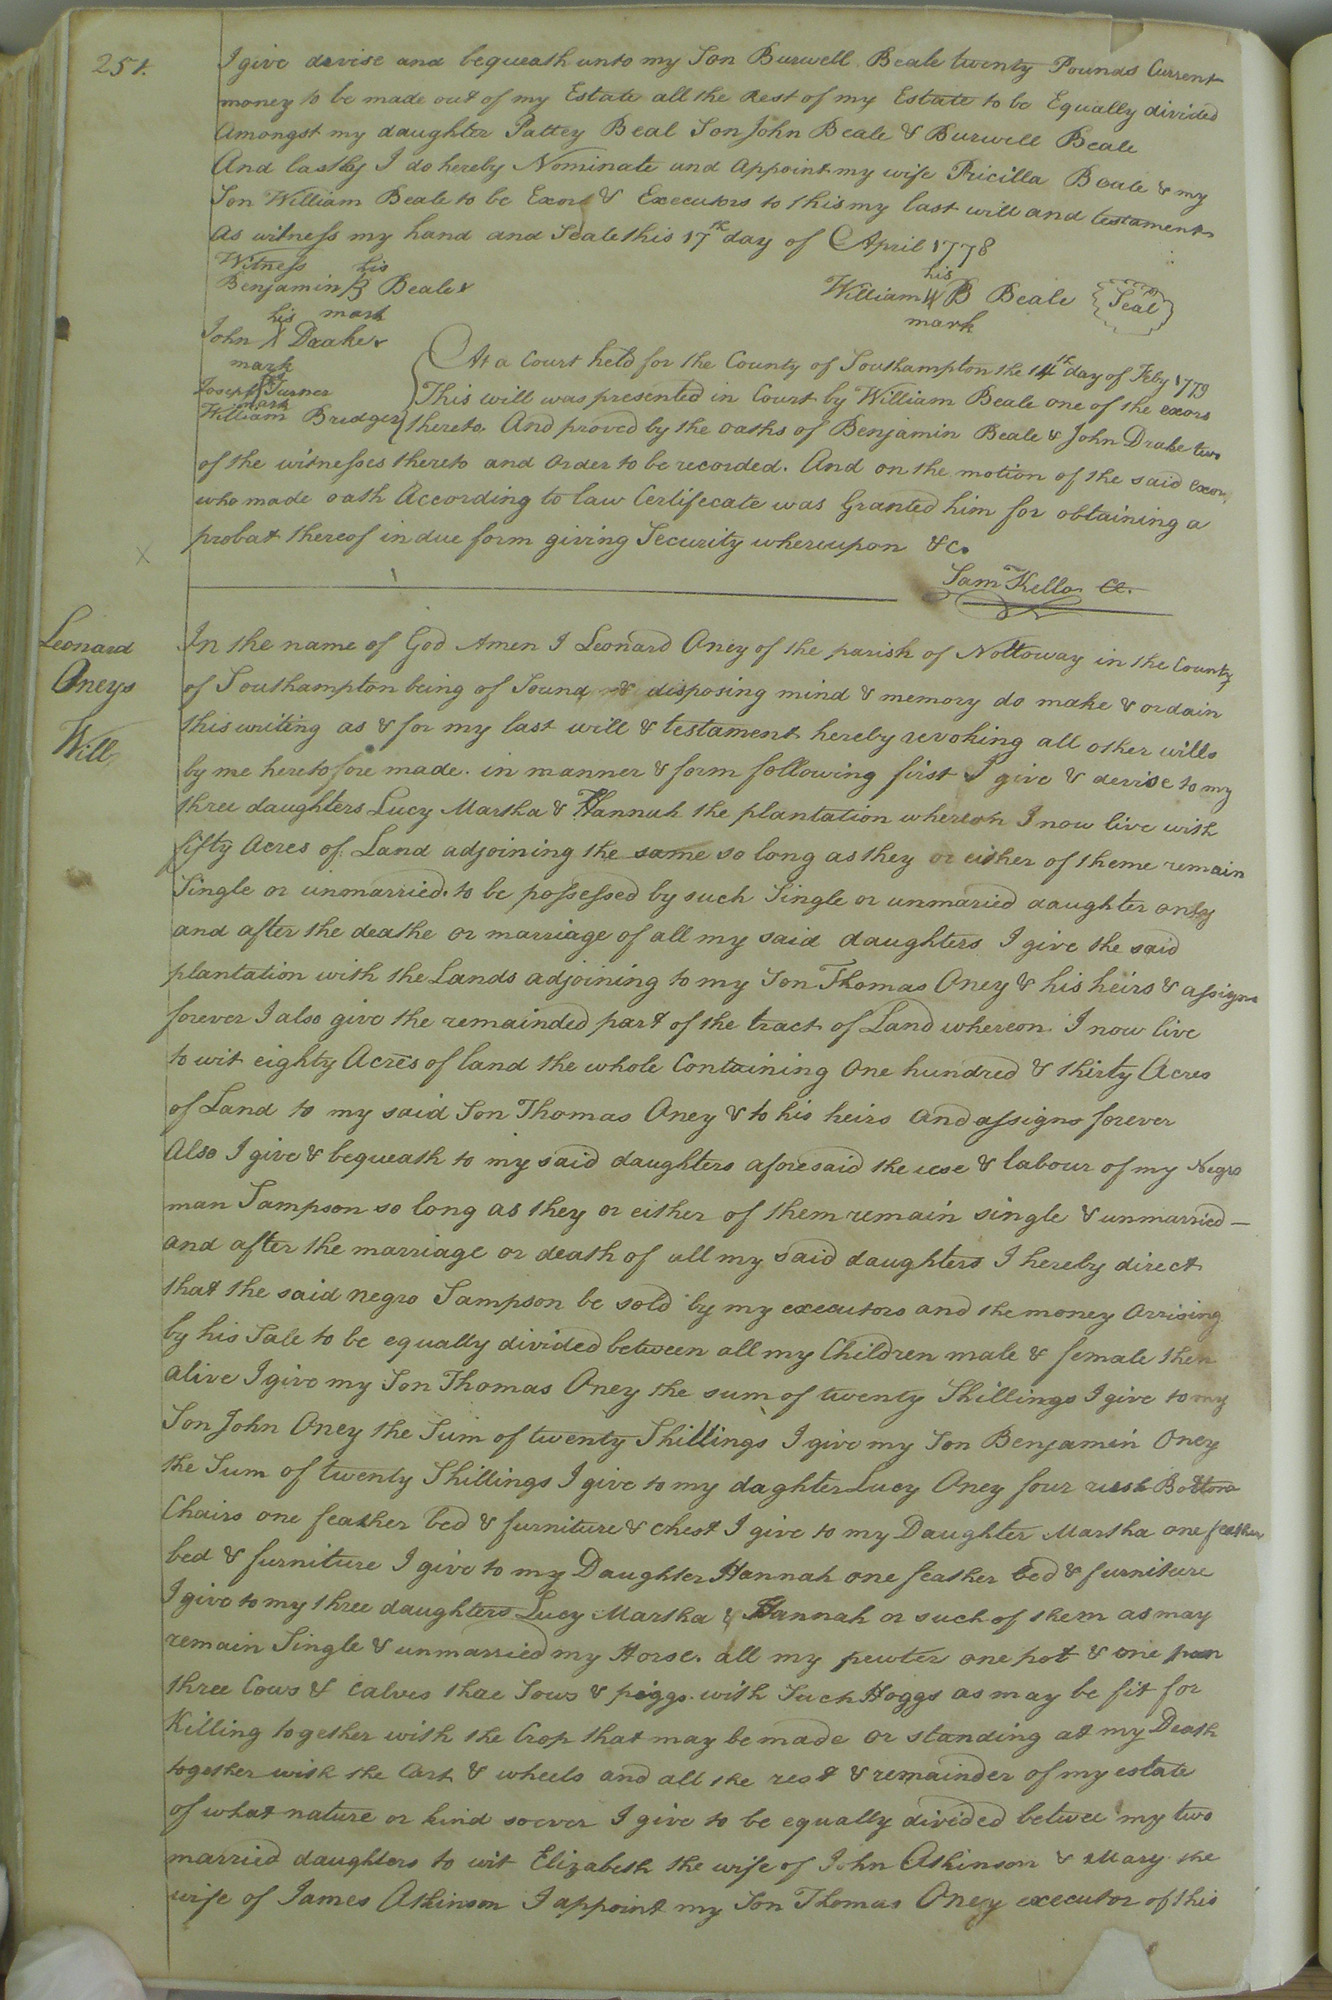 251.
I give devise and bequeath unto my Son Burwell Beale twenty Pounds Current
money to be made out of my Estate all the Rest of my Estate to be Equally divided
Amongst my daughter Pattey Beal Son John Beale & Burwell Beale
And lastly I do hereby Nominate and Appoint my wife Pricilla Beale & my
Son William Beale to be Exors & Executors to this my last will and testament
As witness my hand and Seale this 17th day of April 1778
Witness his
Benjamin B Beale
mark
his
William B Beale Seal
mark
his
John X Drake
mark
Joseph his Turner
mark
William Bridger
At a Court held for the County of Southampton the 14th day of Feby 1779
This will was presented in Court by William Beale one of the exors
thereto And proved by the oaths of Benjamin Beale & John Drake two
of the witnesses thereto and order to be recorded. And on the motion of the said Exor
who made oath According to law Certifecate was Granted him for obtaining a
probat thereof in due form giving Security whereupon &c.
Sam Kello Cl.
Leonard
Oneys
Will
In the name of God Amen I Leonard Oney of the parish of Nottoway in the County
of Southampton being of Sound & disposing mind & memory do make & ordain
this writing as & for my last will & testament hereby revoking all other wills
by me heretofore made. in manner & form following first I give & devise to my
three daughters Lucy Martha & Hannah the plantation whereon I now live with
fifty Acres of Land adjoining the same so long as they or either of theme remain
Single or unmarried. to be possessed by such Single or unmaried daughter only
and after the deathe or marriage of all my said daughters I give the said
plantation with the Lands adjoining to my Son Thomas Oney & his heirs & assigns
forever I also give the remainded part of the tract of Land whereon I now live
to wit eighty Acres of land the whole Containing One hundred & thirty Acres
of Land to my said Son Thomas Oney & to his heirs and assigns forever
Also I give & bequeath to my said daughters aforesaid the use & labour of my Negro
man Sampson so long as they or either of them remain single & unmarried
and after the marriage or death of all my said daughters I hereby direct
that the said negro Sampson be sold by my executors and the money Arrising
by his Sale to be equally divided between all my Children male & female then
alive I give my Son Thomas Oney the sum of twenty Shillings I give to my
Son John Oney the Sum of twenty Shillings I give my Son Benjamin Oney
the Sum of twenty Shillings I give to my daghter Lucy Oney four rush Bottom
Chairs one feather bed & furniture & chest I give to my Daughter Martha one feather
bed & furniture I give to my Daughter Hannah one feather bed & furniture
I give to my three daughters Lucy Martha & Hannah or such of them as may
remain Single & unmarried my Horse. all my pewter one pot & one pan
three Cows & Calves thee Sows & piggs with Such Hoggs as may be fit for
Killing together with the Crop that may be made or standing at my Death
together with the Cart & wheels and all the rest & remainder of my estate
of what nature or kind soever I give to be equally divided betwee my two
married daughters to wit Elizabeth the wife of John Atkinson & Mary the
wife of James Atkinson I appoint my Son Thomas Oney executor of this